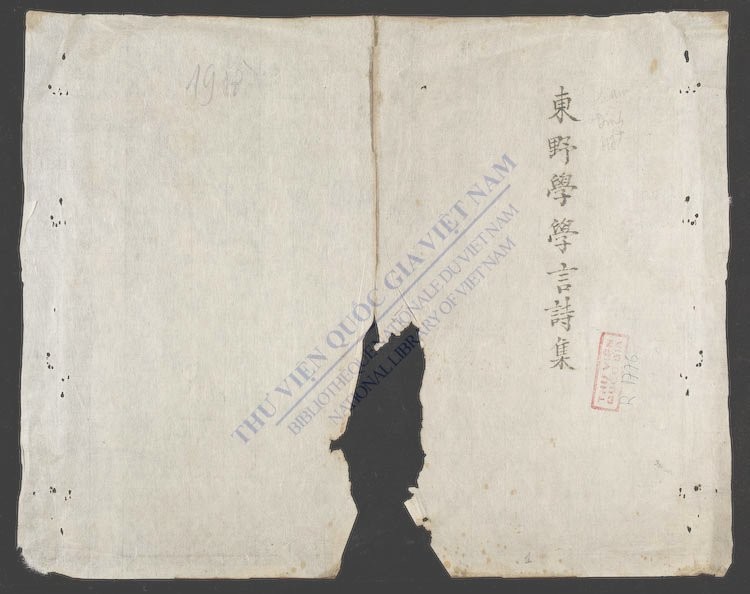 東野學學言詩集
THƯ VIỆN QUỐC GIA VIỆT NAM
BIBLIOTHÈQUE NATIONALE DU VIETNAM
NATIONAL LIBRARY OF VIETNAM
THƯ VIỆN
R 1776
1